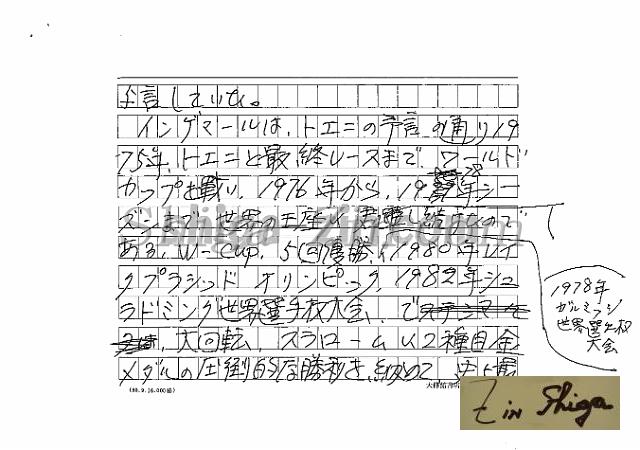 予言していた。
インゲマールは、トエニの予言の通り19
75年、トエニと最終レースまで、ワールド
カップを戦い、1976年から、1978年シー
ズンまで、世界の王座に君臨し続けたので
ある。W-Cup. 5回優勝、1980年レイ
クプラシッドオリンピック、1982年シュ
ラドミング世界選手権大会、で
大回転、スラロームの2種目金
メダルの圧倒的な勝利を収めて、史上最
1978年
ガルミッシュ
世界選手権
大会
Shiga Zin.com
Z in Shiga